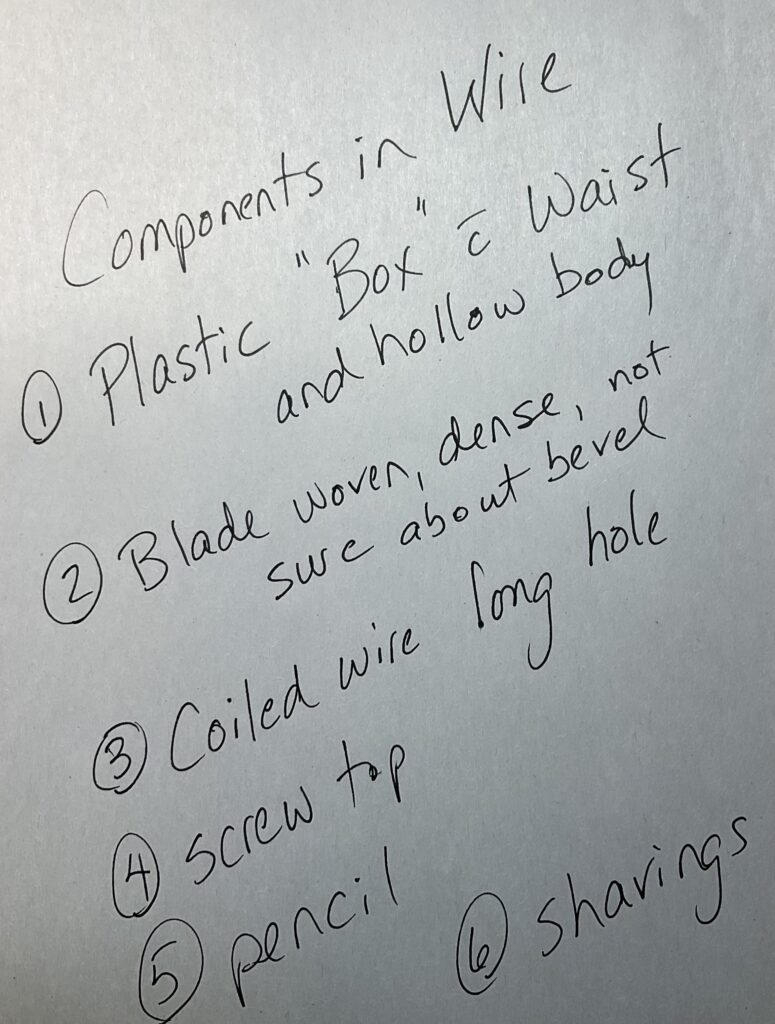 Components in Wire
① Plastic "Box" c̄ Waist
and hollow body
② Blade woven, dense, not
sure about bevel
③ Coiled wire long hole
④ screw top
⑤ pencil ⑥ sharings